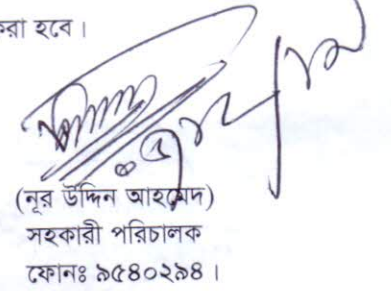 করা হবে।
(নূর উদ্দিন আহমেদ)
সহকারী পরিচালক
ফোনঃ ৯৫৪০২৯৪।